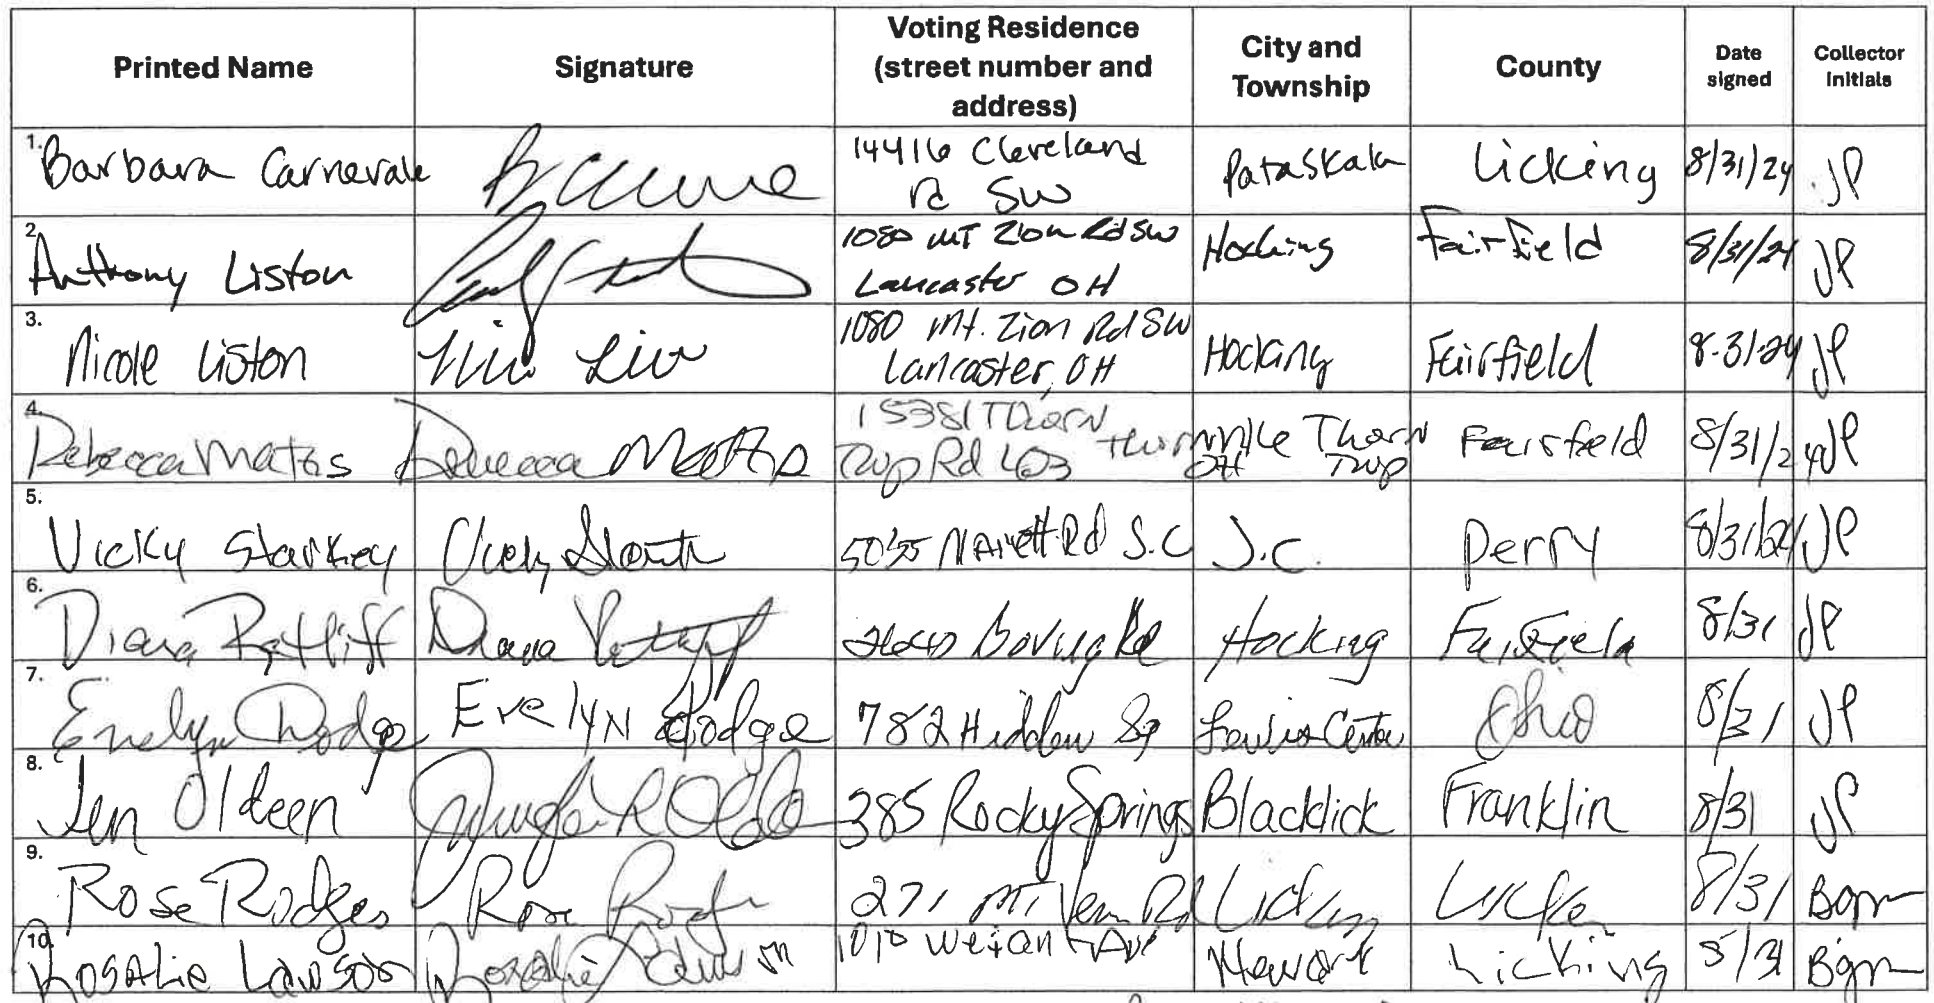 Printed Name Signature Voting Residence (street number and address) City and Township County Date signed Collector initials
1. Barbara Carnevale 14416 Cleveland Rd SW Pataskala Licking 8/31/24 JP
2. Anthony Liston 1080 MT Zion Rd SW Lancaster OH Hocking Fairfield 8/31/24 JP
3. Nicole Liston 1080 Mt. Zion Rd SW Lancaster, OH Hocking Fairfield 8-31-24 JP
4. Rebecca Mattis Rebecca Mattis 15381 Thorn Twp Rd 403 Thornville OH Thorn Twp Fairfield 8/31/24 JP
5. Vicky Starkey Rd S.C J.C. Perry 8/31/24 JP
6. Diana Ratliff Diana Ratliff Hocking Fairfield 8/31 JP
7. Evelyn Dodge Evelyn Dodge 782 Hidden Sq Lewis Center Ohio 8/31 JP
8. Jen Oldeen 385 Rocky Springs Blacklick Franklin 8/31 JP
9. Rose Rodges Rose 271 MT Vern Rd 8/31 Bgm
10. Rosalie Lawson Rosalie Lawson 1010 Ave Newark Licking 8/31 Bgm